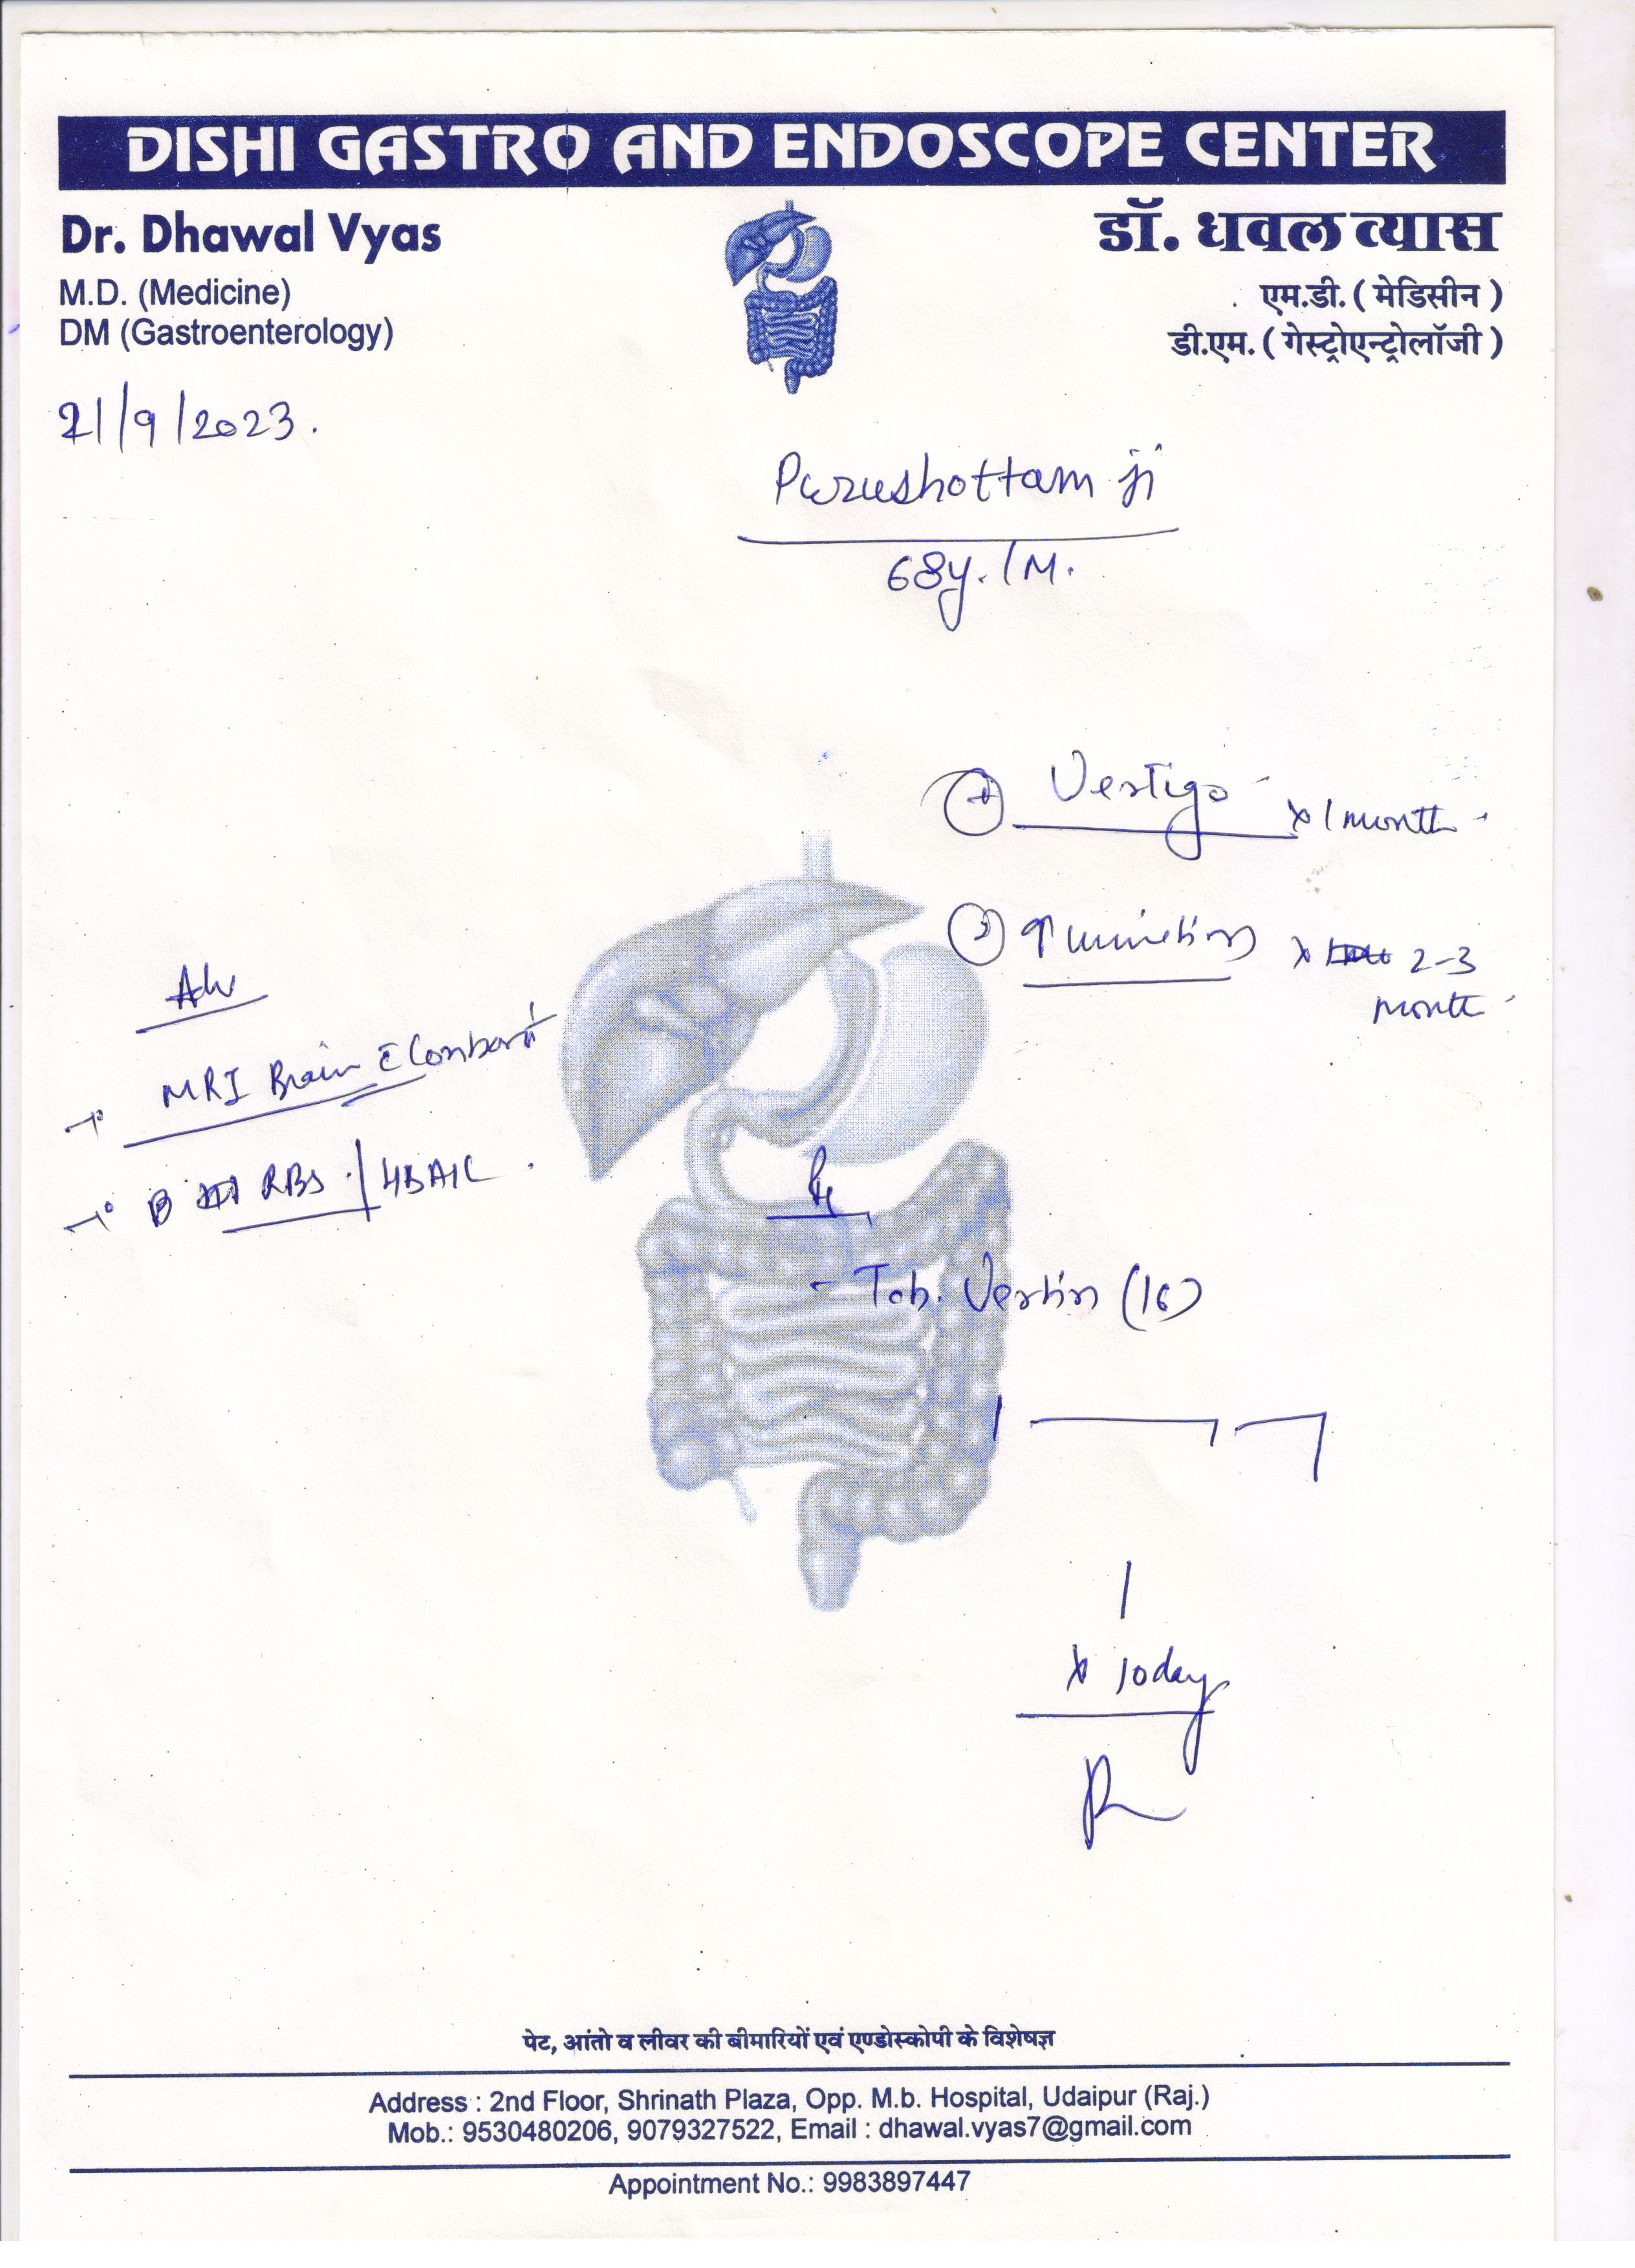 DISHI GASTRO AND ENDOSCOPE CENTER
Dr. Dhawal Vyas
M.D. (Medicine)
DM (Gastroenterology)
डॉ. धवल व्यास
एम.डी. ( मेडिसीन )
डी.एम. ( गेस्ट्रोएन्ट्रोलॉजी )
21/9/2023.
Purushottam ji
68y./M.
Vertigo x 1 month
② ↑ urination x 2-3
month
Adv
MRI Brain c̄ Contrast
RBS / HbA1C
Rx
- Tab. Vertin (16)
1 — 1
1
x 10day
पेट, आंतो व लीवर की बीमारियों एवं एण्डोस्कोपी के विशेषज्ञ
Address : 2nd Floor, Shrinath Plaza, Opp. M.b. Hospital, Udaipur (Raj.)
Mob.: 9530480206, 9079327522, Email : dhawal.vyas7@gmail.com
Appointment No.: 9983897447